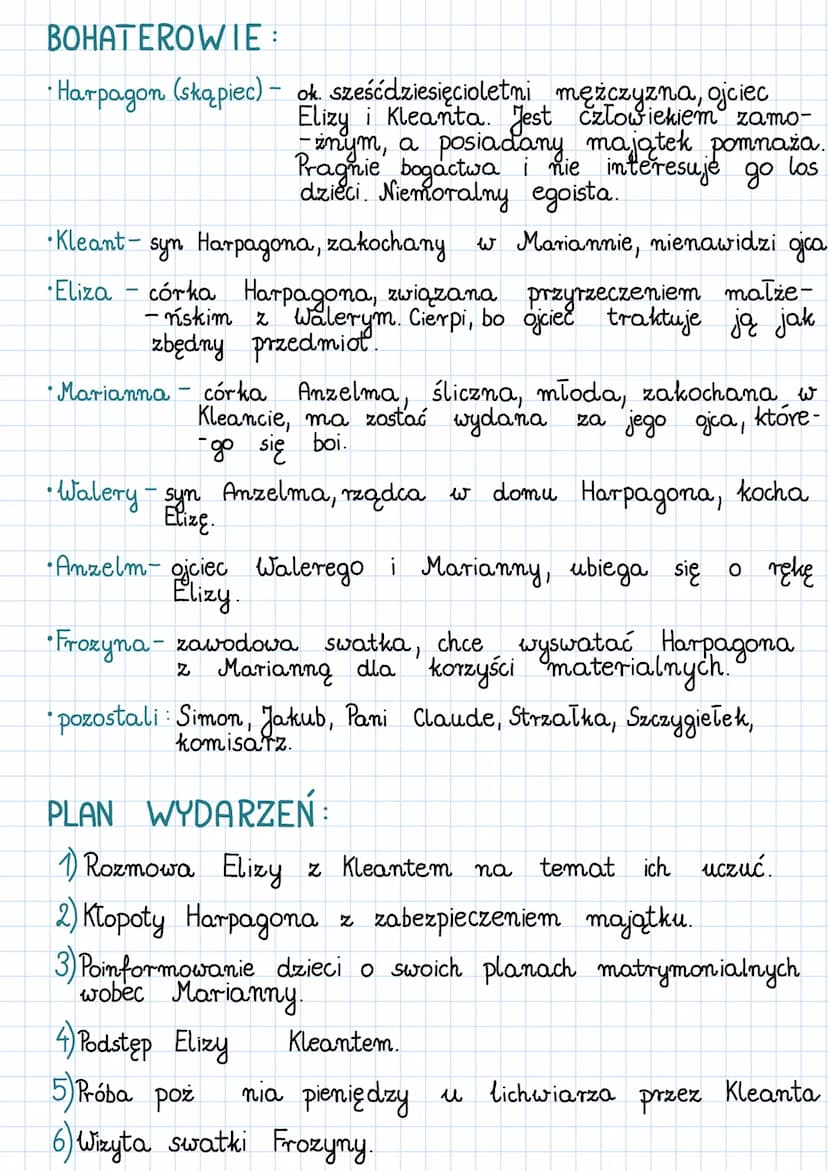 BOHATEROWIE:
• Harpagon (skąpiec) - ok. sześćdziesięcioletni mężczyzna, ojciec
Elizy i Kleanta. Jest człowiekiem zamo-
-żnym, a posiadany majątek pomnaża.
Pragnie bogactwa i nie interesuje go los
dzieci. Niemoralny egoista.
• Kleant - syn Harpagona, zakochany w Mariannie, nienawidzi ojca
• Eliza - córka Harpagona, związana przyrzeczeniem małże-
-ńskim z Walerym. Cierpi, bo ojciec traktuje ją jak
zbędny przedmiot.
• Marianna - córka Anzelma, śliczna, młoda, zakochana w
Kleancie, ma zostać wydana za jego ojca, które-
-go się boi.
• Walery - syn Anzelma, rządca w domu Harpagona, kocha
Elizę.
• Anzelm - ojciec Walerego i Marianny, ubiega się o rękę
Elizy.
• Frozyna - zawodowa swatka, chce wyswatać Harpagona
z Marianną dla korzyści materialnych.
• pozostali: Simon, Jakub, Pani Claude, Strzałka, Szczygiełek,
komisarz.
PLAN WYDARZEŃ:
1) Rozmowa Elizy z Kleantem na temat ich uczuć.
2) Kłopoty Harpagona z zabezpieczeniem majątku.
3) Poinformowanie dzieci o swoich planach matrymonialnych
wobec Marianny.
4) Podstęp Elizy Kleantem.
5) Próba poż nia pieniędzy u lichwiarza przez Kleanta
6) Wizyta swatki Frozyny.